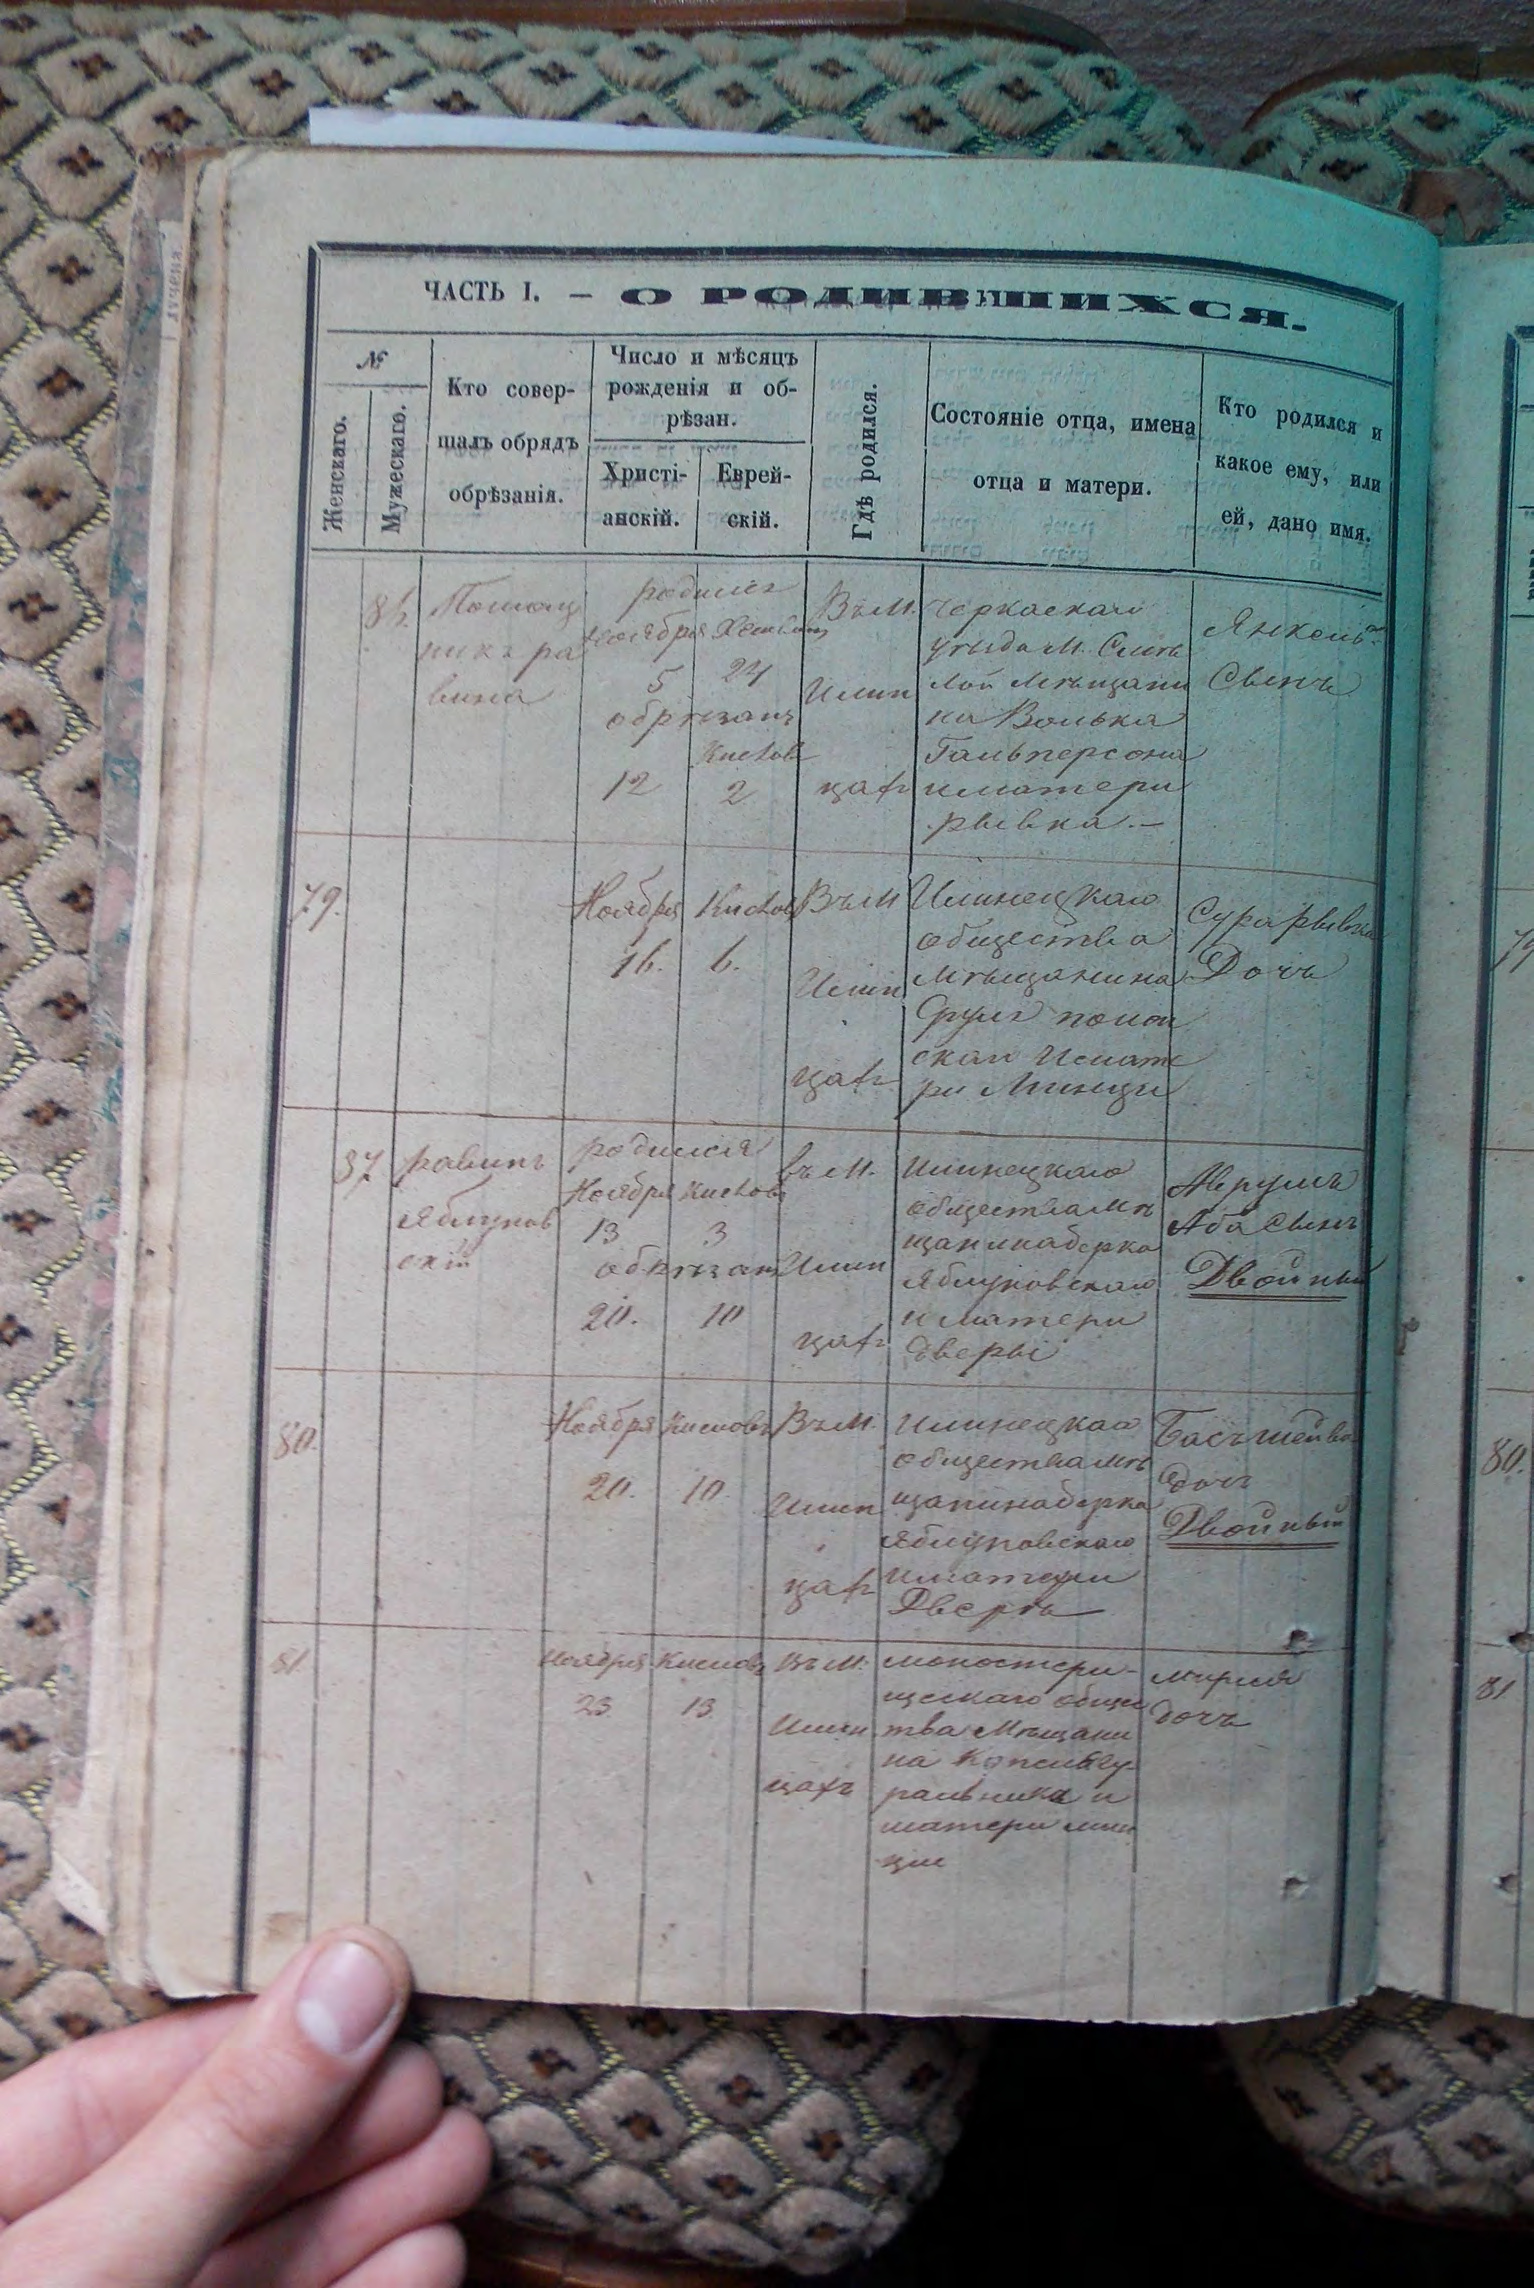 ЧАСТЬ I. – О РОДИВШИХСЯ.
№
Женскаго.
Мужескаго.
Кто совер-
шалъ обрядъ
обрѣзанія.
Число и мѣсяцъ
рожденія и об-
рѣзан.
Христі-
анскій.
Еврей-
скій.
Гдѣ родился.
Состояніе отца, имена
отца и матери.
Кто родился и
какое ему, или
ей, дано имя.
86.
Помощ
никъ ра
вина
родился
Ноября
5 24
обрѣзанъ
Кислов
12 2
Въ М.
Илин
цахъ
Черкаскаго
уезда М. Смѣ
лой Мѣщани
на Волька
Гальперсона
и матери
рывка. —
Янкель
Сынъ
79.
Ноября Кислов
16. 6.
Въ М
Илин
цахъ
Илинецкаго
общества
Мѣщанина
Сруля
и мате
ри Минци
Сура рывка
Дочь
37
равинъ
Яблунов
скій
родился
Ноября Кислов
13 3
обрѣзанъ
20. 10
въ М.
Илин
цахъ
Илинецкаго
общества мѣ
щанина берка
Яблуновскаго
и матери
двери
Аврумъ
Аба Сынъ
Двойный
80.
Ноября Кисловъ
20. 10.
Въ М.
Илин
цахъ
Илинецкаго
общества мѣ
щанина берка
Яблуновскаго
и матери
Двери
Бася шейва
дочь
Двойный
81
Ноября Кислов
23. 13.
Въ М.
Илин
цахъ
монастери-
щскаго общес
тва Мѣщани
на
и
матери мин
ци
мирля
дочь
79
80.
81